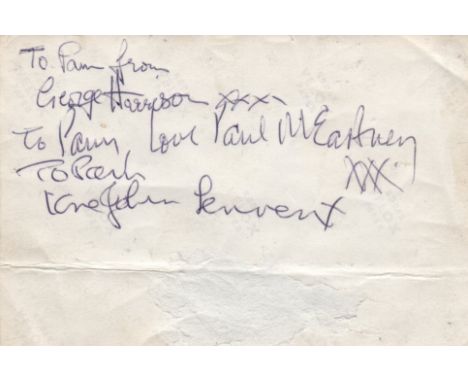 To Pam from
George Harrison xxx
To Pam, love Paul McCartney
xxx
To Pam
love John Lennon x